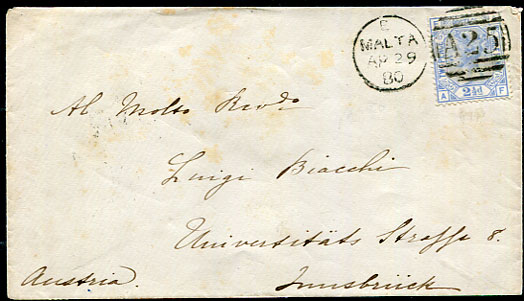 E
MALTA
AP 29
80
A25
2½d
A F
Al Molto Revdo
Luigi Biacchi
Universitäts Strasse 8.
Austria. Innsbrück